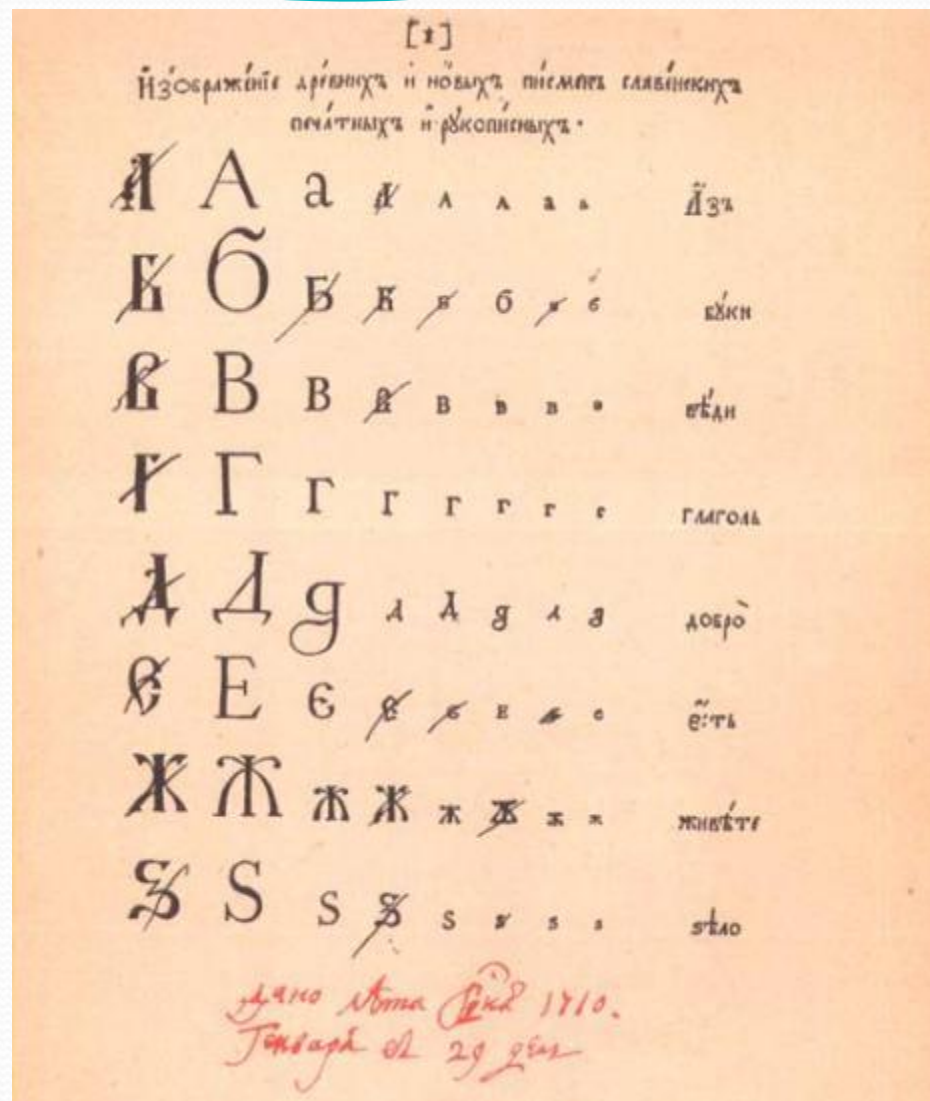 [1]
И҆зѡбраже́нїе дре́внихъ и҆ но́выхъ пи́сменъ славе́нскихъ
печа́тныхъ и҆ рꙋкопи́сныхъ.
А А а А А А а а А҆́зъ
Б б Б Б Б б б б бꙋ́ки
В В в В в в в в вѣ́ди
Г Г г г г г г г глаголь
Д Д д д д д д д добро̀
Є Е є є є е є є є҆́сть
Ж Ж ж ж ж ж ж ж живѣ́те
Ѕ Ѕ ѕ ѕ ѕ ѕ ѕ ѕ ѕѣло
Дано лѣта 1710.
Генваря въ 29 день